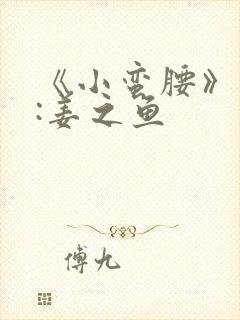 《小蛮腰》
:姜之鱼
傅九